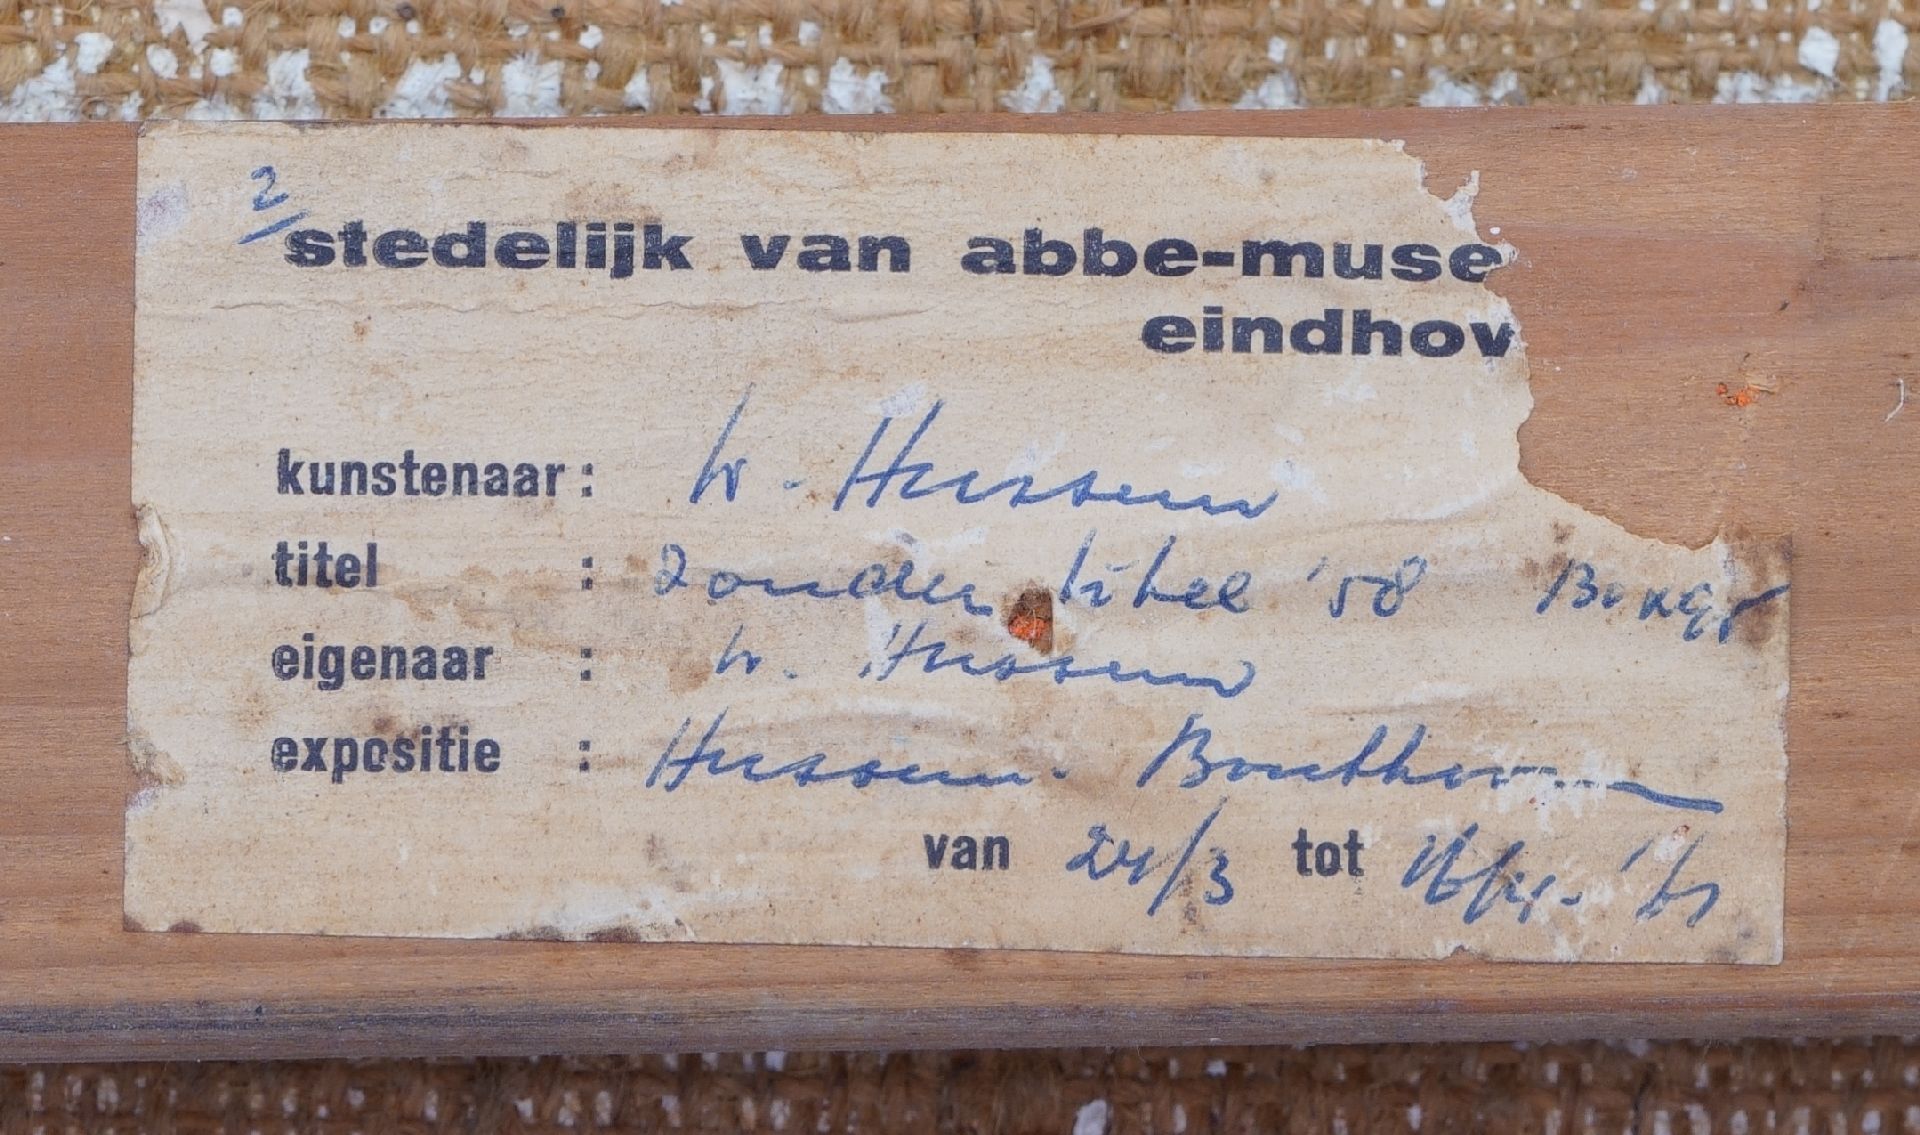 2/
stedelijk van abbe-muse
eindhov
kunstenaar: W. Hussem
titel : zonder titel '58
eigenaar : W. Hussem
expositie : Hussem - Bouthoorn
van 24/3 tot